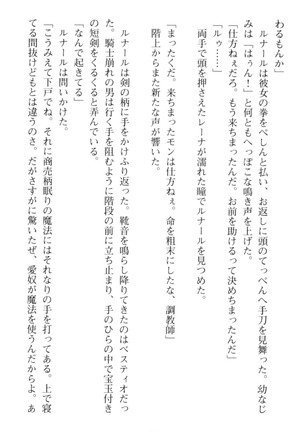 わるもんか」
　ルナールは彼女の拳をぺしんと払い、お返しに頭のてっぺんへ手刀を見舞った。幼なじ
みは「はぅん！」と何ともへっぽこな鳴き声を上げた。
「仕方ねぇだろ。もう来ちまったんだ。お前を助けるって決めちまったんだ」
「ルゥ……」
　両手で頭を押さえたレーナが濡れた瞳でルナールを見つめた。
「まったくだ。来ちまったモンは仕方ねぇ。命を粗末にしたな、調教師」
　階上からまた新たな声が響いた。
　ルナールは剣の柄に手をかけふり返った。靴音を鳴らし降りてきたのはベスティオだっ
た。騎士崩れの男は行く手を阻むように階段の前に立ち止まり、手のひらの中で宝玉付き
の短剣をくるくると弄んでいる。
「なんで起きてる」
　ルナールは問いかけた。
「こうみえて下戸でね。それに商売柄眠りの魔法にはそれなりの手を打ってある。上で寝
てる間抜けどもとは違うのさ。だがさすがに驚いたぜ、愛奴が魔法を使うんだからよ。あ